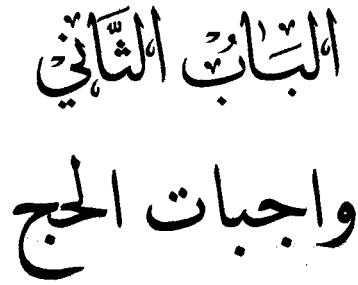 البَابُ الثَّاني
واجبات الحج